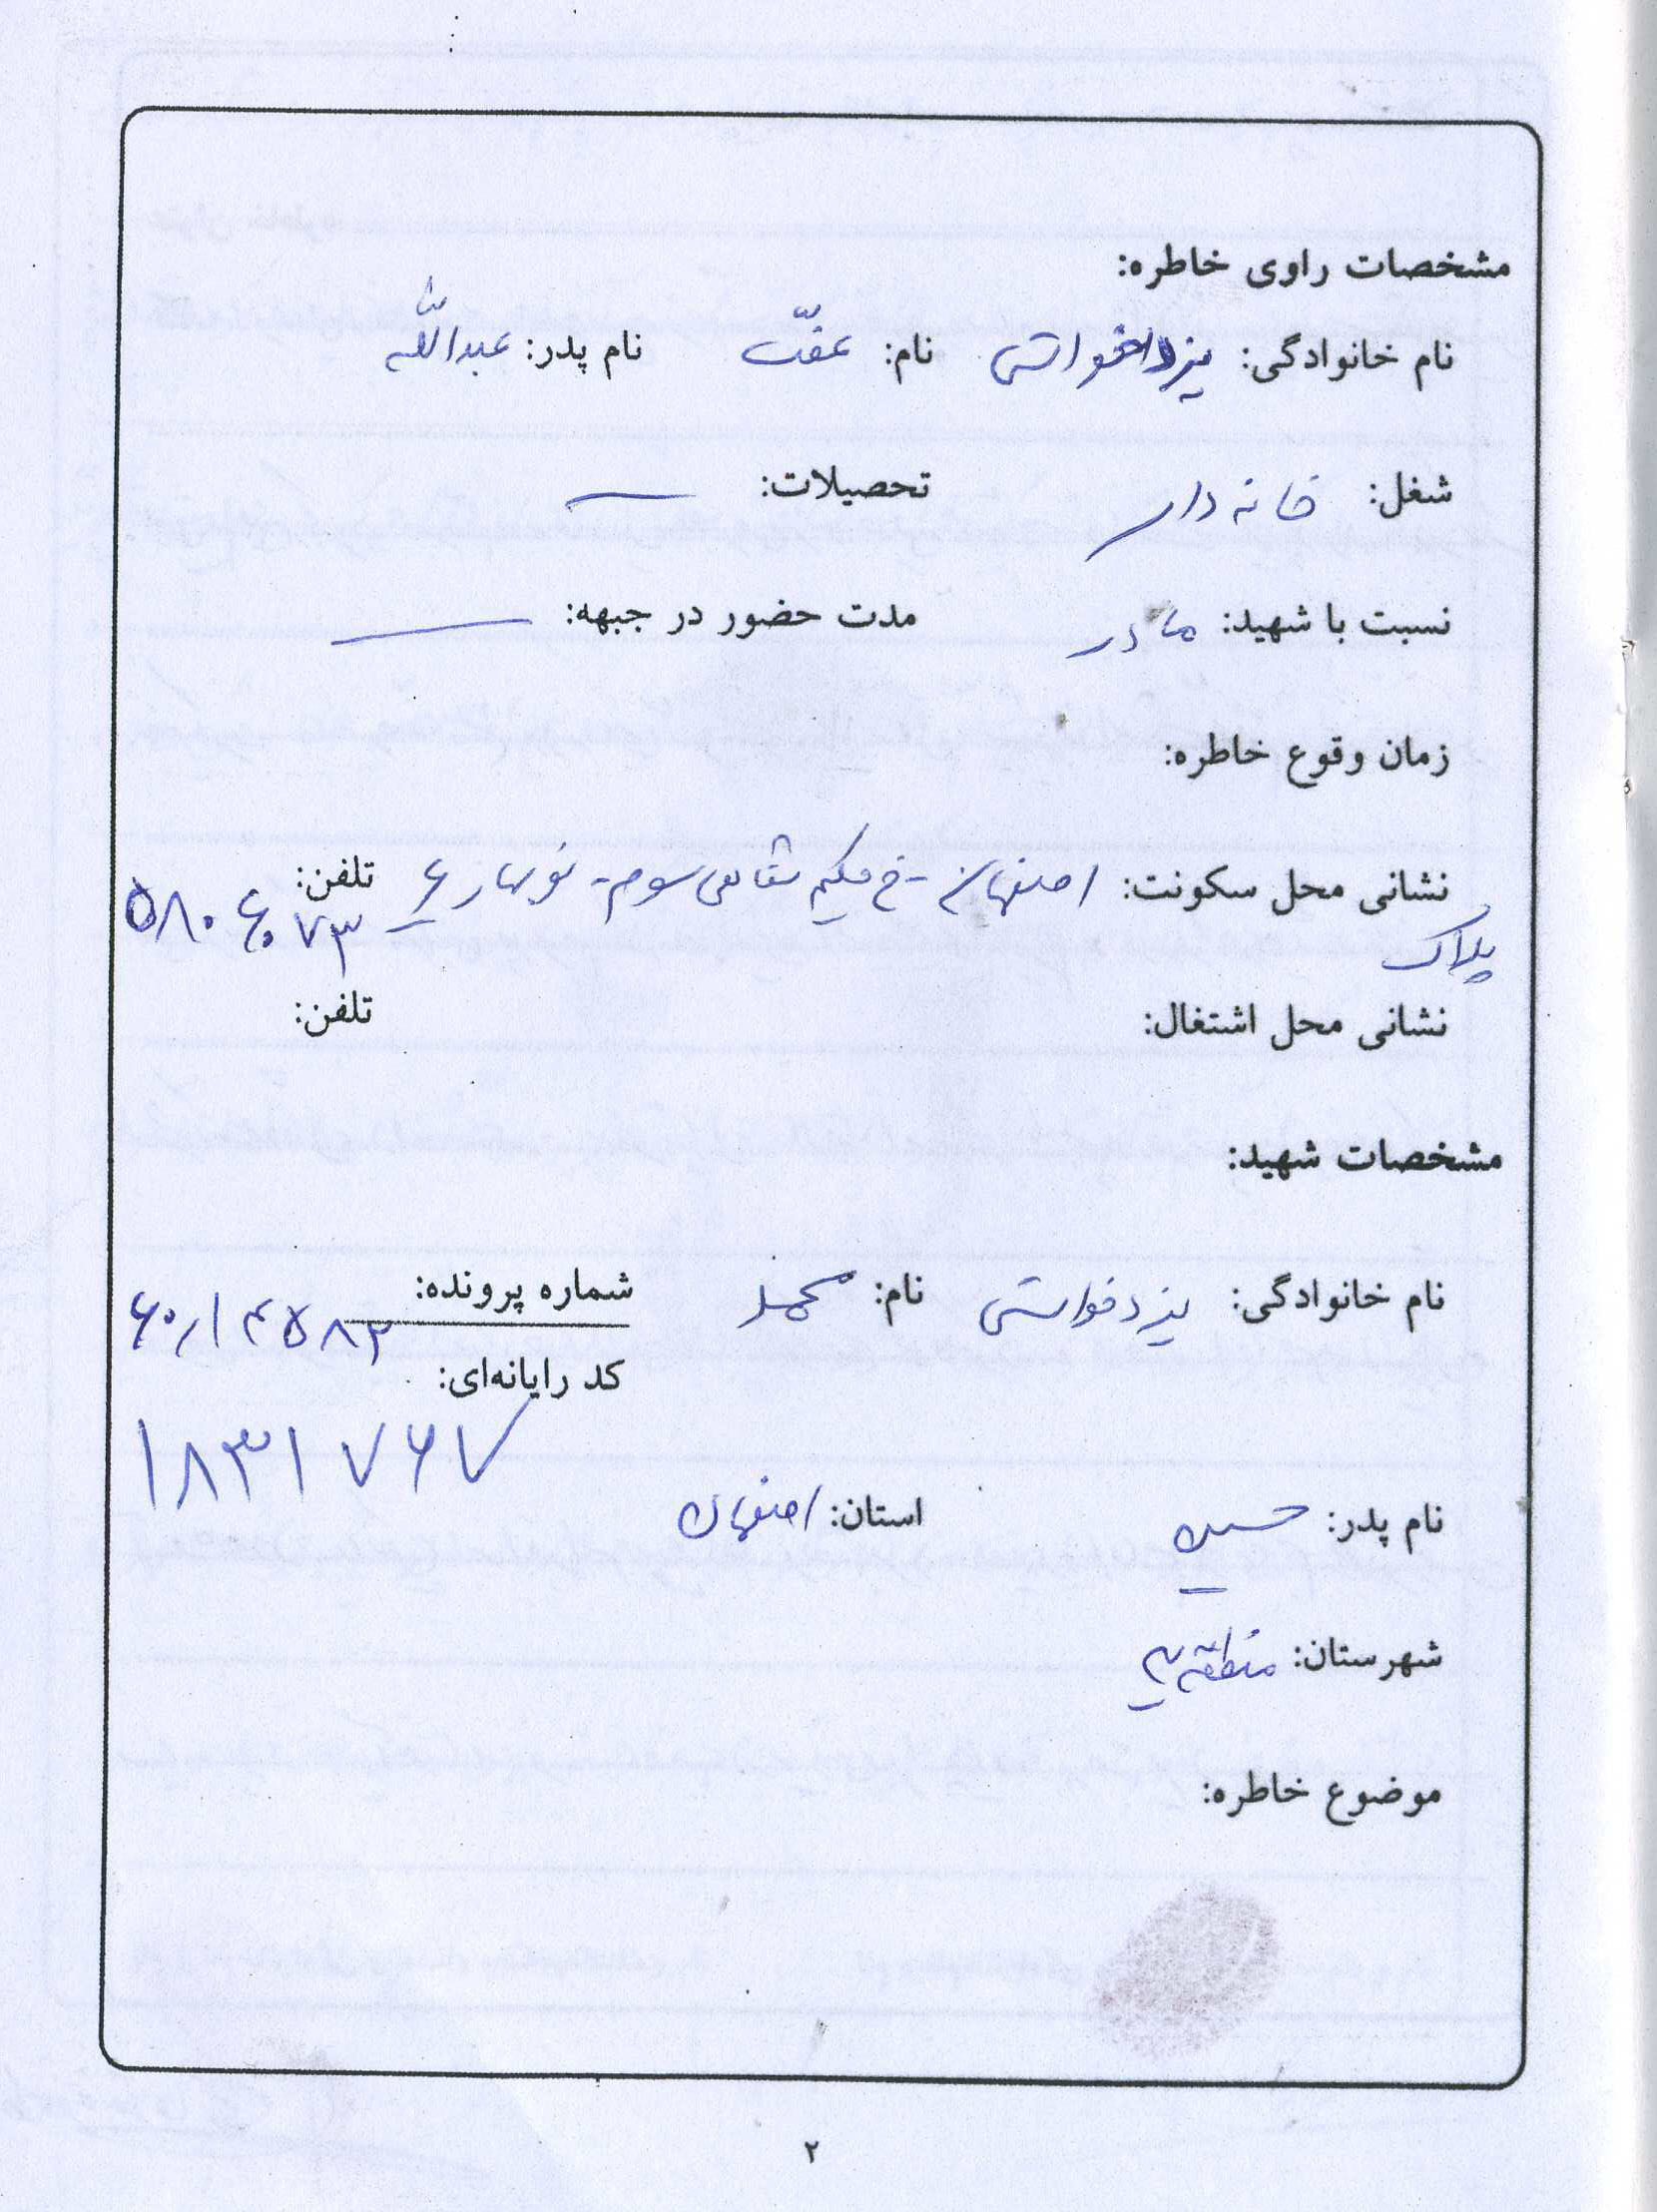 مشخصات راوی خاطره:
نام خانوادگی: یزدخواستی نام: عفت نام پدر: عبدالله
شغل: خانه دار تحصیلات: —
نسبت با شهید: مادر مدت حضور در جبهه: —
زمان وقوع خاطره:
نشانی محل سکونت: اصفهان - خ حکیم شفائی سوم - نوبهار ۴ تلفن:
پلاک ۵۸۰۶۰۷۳
نشانی محل اشتغال: تلفن:
مشخصات شهید:
نام خانوادگی: یزدخواستی نام: محمد شماره پرونده: ۶۰/۱۴۵۸۲
کد رایانه‌ای:
۱۸۳۱۷۶۷
نام پدر: حسین استان: اصفهان
شهرستان: منطقه ۲
موضوع خاطره:
۲